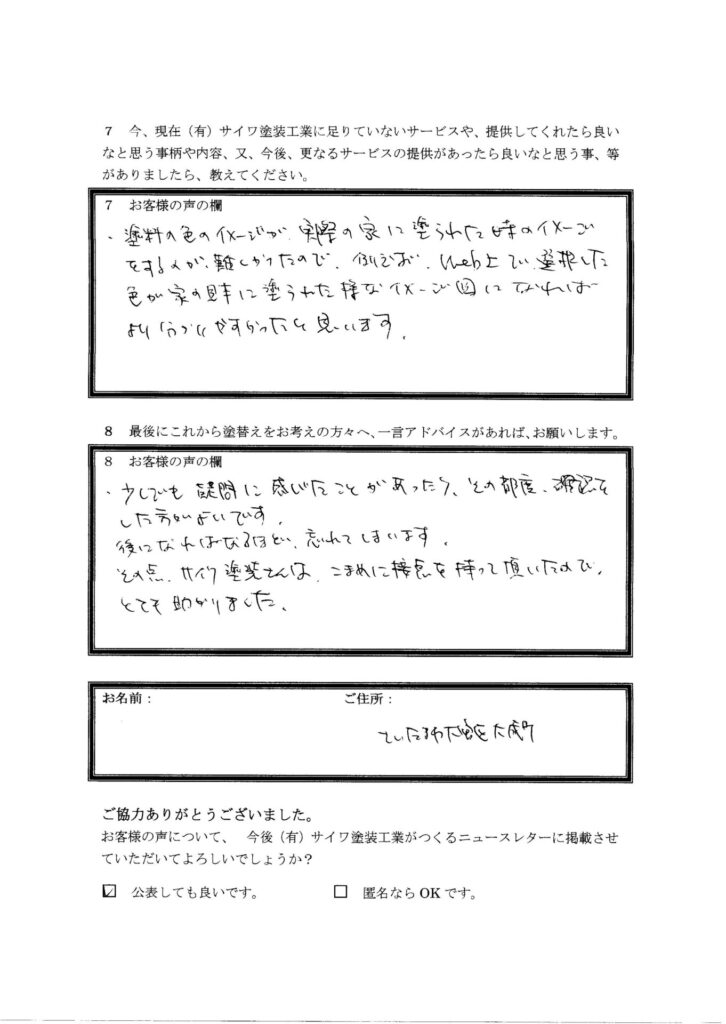 7 今、現在（有）サイワ塗装工業に足りていないサービスや、提供してくれたら良い
なと思う事柄や内容、又、今後、更なるサービスの提供があったら良いなと思う事、等
がありましたら、教えてください。
7 お客様の声の欄
・塗料の色のイメージが、実際の家に塗られた時のイメージ
をするのが、難しかったので、例えば、Web上で、選択した
色が家の見本に塗られた様なイメージ図になれば
より分かりやすかったと思います。
8 最後にこれから塗替えをお考えの方々へ、一言アドバイスがあれば、お願いします。
8 お客様の声の欄
・少しでも疑問に感じたことがあったら、その都度、確認を
した方がよいです。
後になればなるほど、忘れてしまいます。
その点、サイワ塗装さんは、こまめに接点を持って頂いたので、
とても助かりました。
お名前： ご住所：
さいたま市
ご協力ありがとうございました。
お客様の声について、 今後（有）サイワ塗装工業がつくるニュースレターに掲載させ
ていただいてよろしいでしょうか？
☑ 公表しても良いです。 □ 匿名なら OK です。